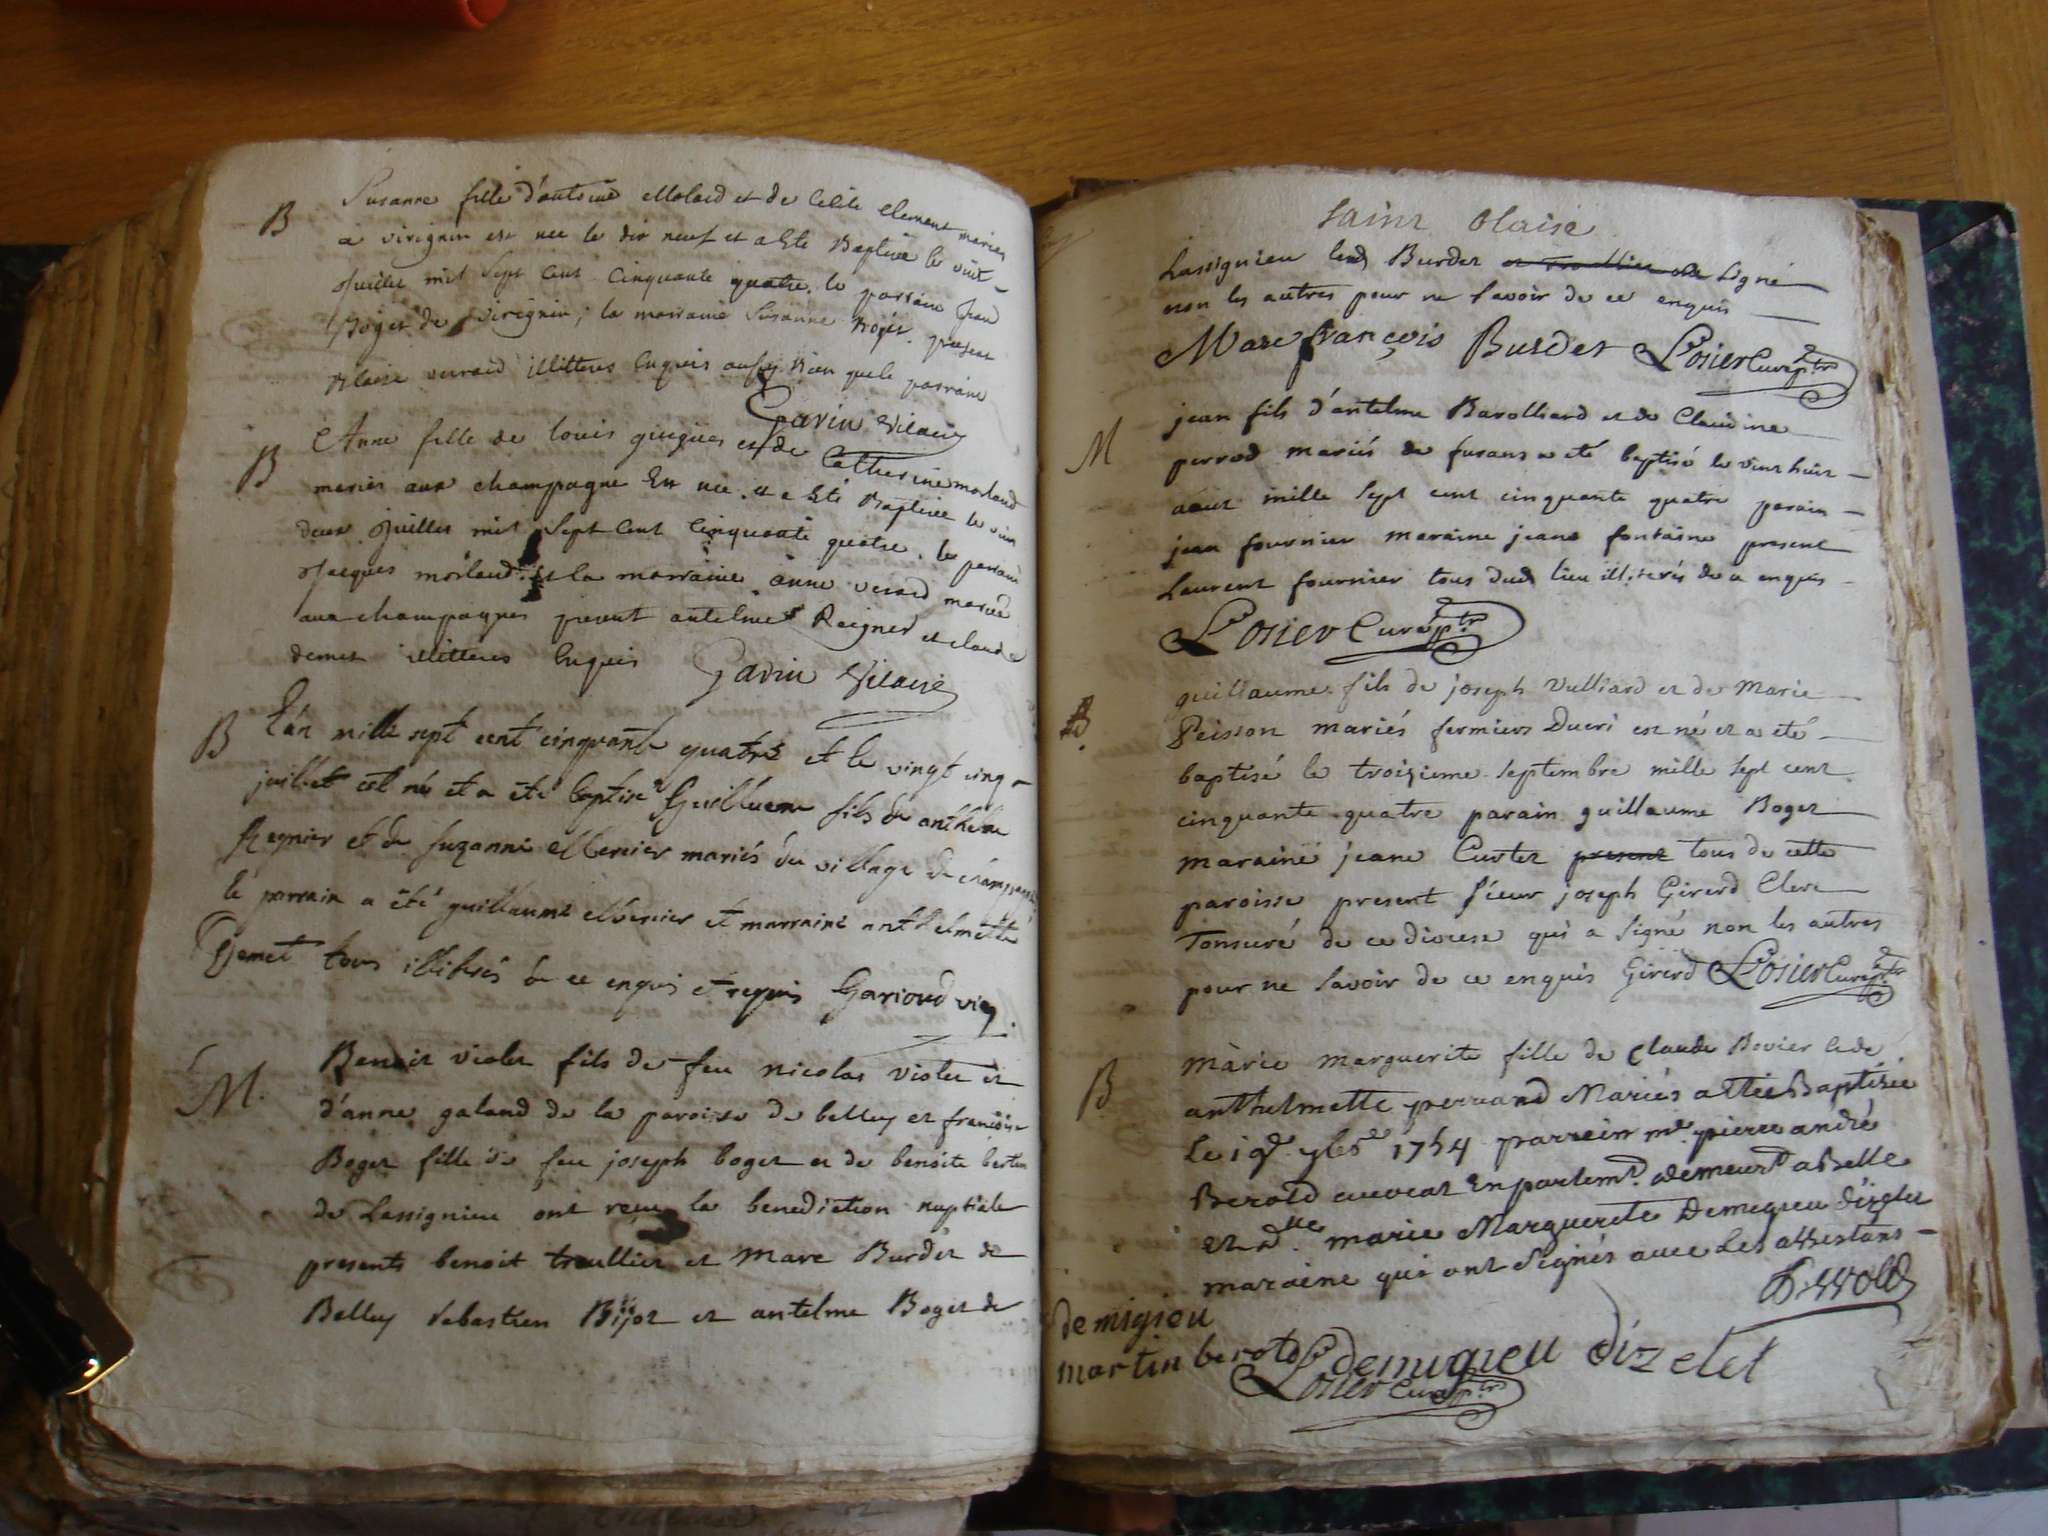 B Susanne fille d'antoine Molard et de Cecile Clement mariés
a virignin est nee le dix neuf et a Ete Baptisée le vint
Juillet mil Sept Cent Cinquante quatre. le parrain Jean
Boget de virignin; la marraine Susanne Boget. present
Blaise verard illitteres Enquis aussy Bien que le parrain
Gavin Vicaire
B Anne fille de Louis guigues et de Catherine morland
mariés aux champagne Est née. et a Eté Baptisée le vint
deux Juillet mil Sept Cent Cinquante quatre. le parrain
Jacques morland. Et la marraine anne verard mariée
aux champagnes present antelme Reigner et claude
demet illitteres Enquis Gavin Vicaire
B L'an mille sept cent cinquante quatre et le vingt cinq
juillet est né et a eté baptisé Guillaume fils de anthelme
Reynier et de suzanne Mercier mariés du village de champagne
le parrain a été guillaume Mercier et marraine anthelmette
Djemet tous illitrés de ce enquis et requis Garioud vic.
M. Benoit violet fils de feu nicolas violet et
d'anne galand de la paroisse de belley et françoise
Boget fille de feu joseph boget et de benoite bertin
de Lassignieu ont reçu la benediction nuptiale
presents benoit troullier et Marc Burdet de
Belley sebastien Bijot et antelme Boget de
saint blaise
Lassignieu led Burdet et Troullier ont signé
non les autres pour ne savoir de ce enquis
Marc françois Burdet Losier Curé ptre
M jean fils d'antelme Barolliard et de Claudine
perrod mariés de furans a eté baptisé le vint huit
aout mille sept cent cinquante quatre parain
jean fournier maraine jeane fontaine present
Laurent fournier tous dud lieu illiterés de ce enquis
Losier Curé ptre
B. guillaume fils de joseph Vulliard et de Marie
Peisson mariés fermiers Dueri est né et a eté
baptisé le troisieme septembre mille sept cent
cinquante quatre parain guillaume Boget
maraine jeane Curtet present tous de cette
paroisse present sieur joseph Girerd Clerc
Tonsuré de ce diocese qui a signé non les autres
pour ne savoir de ce enquis Girerd Losier Curé ptre
B Marie marguerite fille de Claude Bovier et de
anthelmette perrand Mariés a ettée Baptisée
Le 19e 7bre 1754 parrein me pierre andré
Berold avocat En parlemt. demeurt a Belle
et dlle marie Marguerite Demigieu dizelet
maraine qui ont Signés avec Les assistans
Berold
demigieu
martin berold demigieu dizelet
Losier Curé ptre